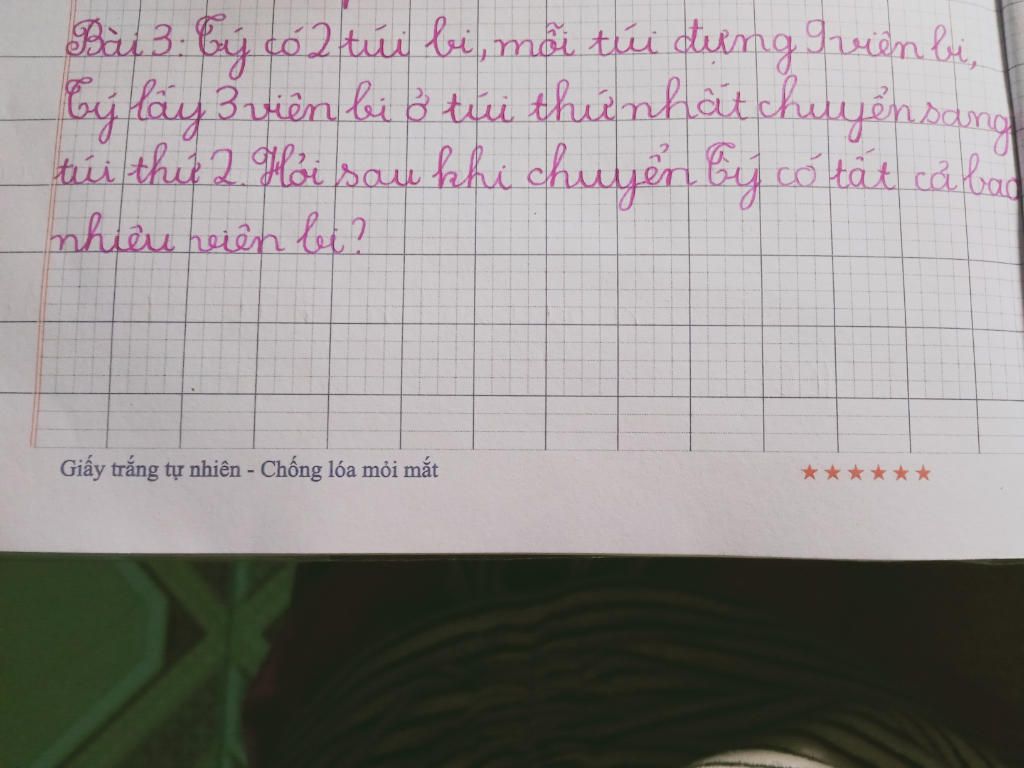 Bài 3: Tý có 2 túi bi, mỗi túi đựng 9 viên bi,
Tý lấy 3 viên bi ở túi thứ nhất chuyển sang
túi thứ 2. Hỏi sau khi chuyển Tý có tất cả bao
nhiêu viên bi?
Giấy trắng tự nhiên - Chống lóa mỏi mắt